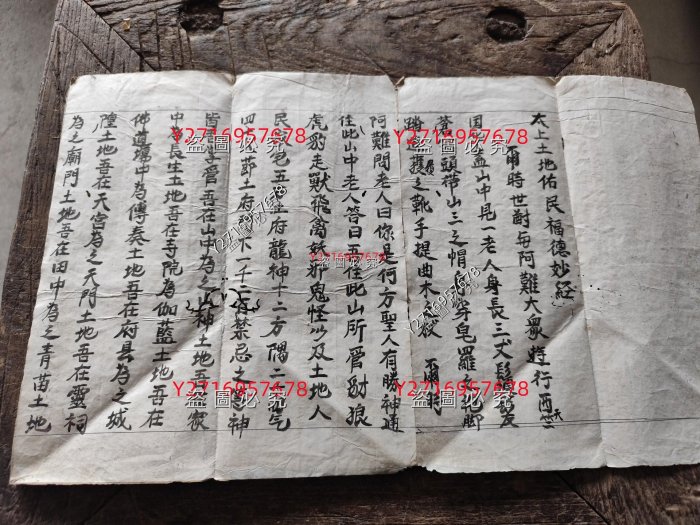 太上土地佑民福德妙経
爾時世尊与阿難大衆遊行西天竺
国 山中見一老人身長三丈髮 皮
蒼頭帯山三之帽身穿皂羅 袍脚
踏 之靴手提曲木 爾時
阿難問老人曰你是何方聖人有勝神通
往此山中老人答曰吾住此山所管豺狼
虎豹走獣飛禽妖邪鬼怪以及土地人
民 五 府龍神十二方隅二 气
四 土府 下一千二 禁忌之 神
皆 管吾在山中為之山神土地吾在
中為長生土地吾在寺院為伽藍土地吾在
佛道場中為傳奏土地吾在府县為之城
隍土地吾在天宮為之天門土地吾在靈祠
為之廟門土地吾在田中為之青苗土地
Y2716957678
盜圖必究
Y2716957678
盜圖必究
Y2716957678
盜圖必究
Y2716957678
盜圖必究
Y2716957678
盜圖必究
Y2716957678
盜圖必究